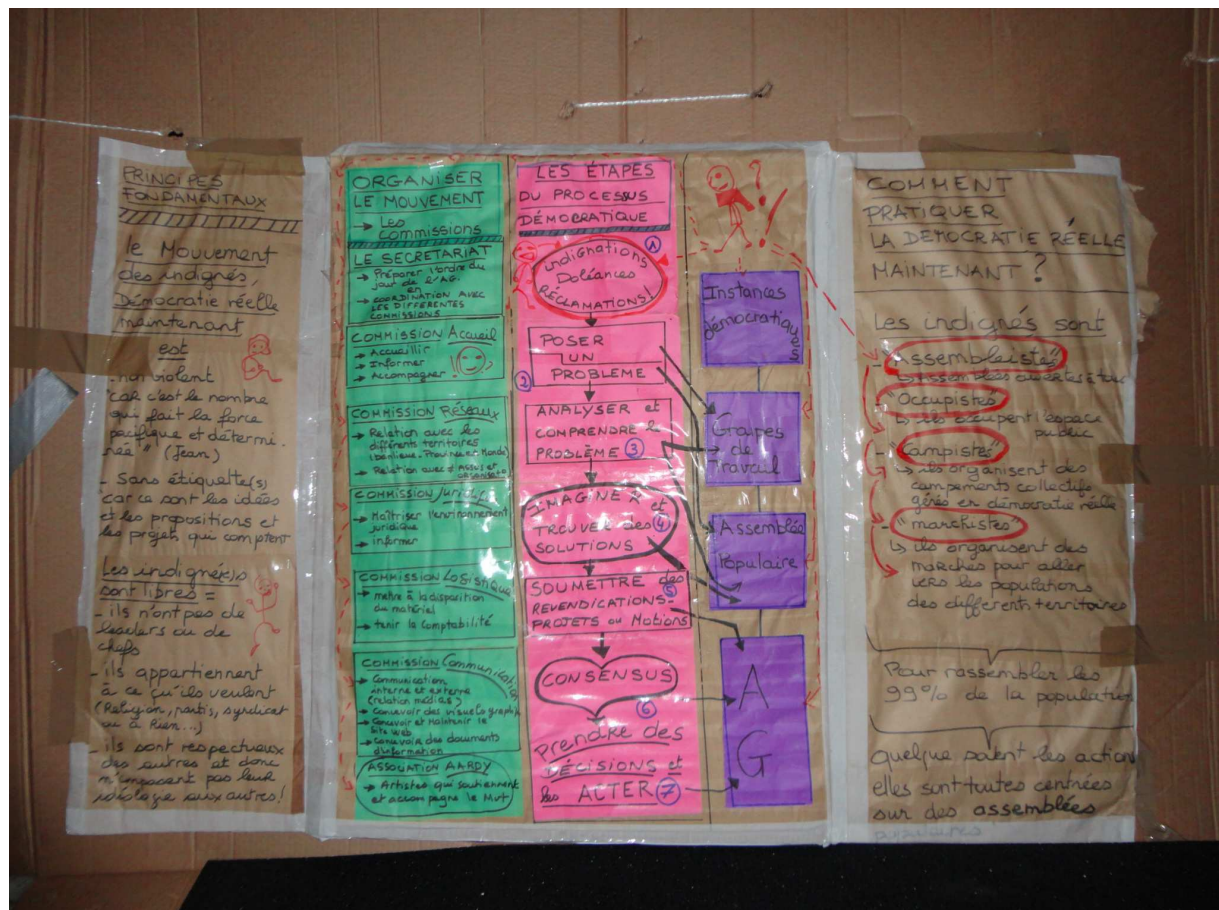 PRINCIPES
FONDAMENTAUX
le Mouvement
des indignés,
Démocratie réelle
maintenant
est
- non violent
"car c'est le nombre
qui fait la force
pacifique et détermi-
née" (Jean)
- Sans étiquette(s)
car ce sont les idées
et les propositions et
les projets qui comptent
Les indigné(e)s
sont libres =
- ils n'ont pas de
leaders ou de
chefs
- ils appartiennent
à ce qu'ils veulent
(Religion, partis, syndicat
ou à Rien...)
- ils sont respectueux
des autres et donc
n'imposent pas leur
idéologie aux autres!
ORGANISER
LE MOUVEMENT
→ Les
Commissions
LE SECRETARIAT
→ Préparer l'ordre du
jour de l'AG.
en
→ COORDINATION AVEC
LES DIFFÉRENTES
COMMISSIONS
COMMISSION Accueil
→ Accueillir
→ Informer
→ Accompagner
COMMISSION Réseaux
→ Relation avec les
différents territoires
(banlieue. Province en Monde)
→ Relation avec ≠ Assos et
COMMISSION Juridique
→ Maîtriser l'environnement
juridique
→ informer
COMMISSION Logistique
→ metre à la disposition
du matériel
→ tenir la comptabilité
COMMISSION Communication
→ Communication
interne et externe
(relation médias)
→ Concevoir des visuels
→ Concevoir et Maintenir le
Site web
→ Concevoir des documents
d'information
ASSOCIATION AARDY
→ Artistes qui soutiennent
et accompagne le Mvt
LES ÉTAPES
DU PROCESSUS
DÉMOCRATIQUE
1
indignations
Doléances
RÉCLAMATIONS!
POSER
UN
PROBLEME
2
ANALYSER et
COMPRENDRE le
PROBLÈME 3
IMAGINER et
TROUVER des 4
SOLUTIONS
SOUMETTRE des
5
REVENDICATIONS-
PROJETS ou Motions
CONSENSUS
6
Prendre des
DÉCISIONS et
les ACTER 7
? !
Instances
démocratiques
Groupes
de
Travail
Assemblée
Populaire
A
G
COMMENT
PRATIQUER
LA DEMOCRATIE RÉELLE
MAINTENANT ?
Les indignés sont
- "Assembleistes"
↳ Assemblées ouvertes à tous
- "Occupistes"
↳ ils occupent l'espace
public
- "Campistes"
↳ ils organisent des
campements collectifs
gérés en démocratie réelle
- "marchistes"
↳ ils organisent des
marches pour aller
vers les populations
des différents territoires
Pour rassembler les
99% de la population
Quelque soient les actions
elles sont toutes centrées
sur des assemblées
populaires